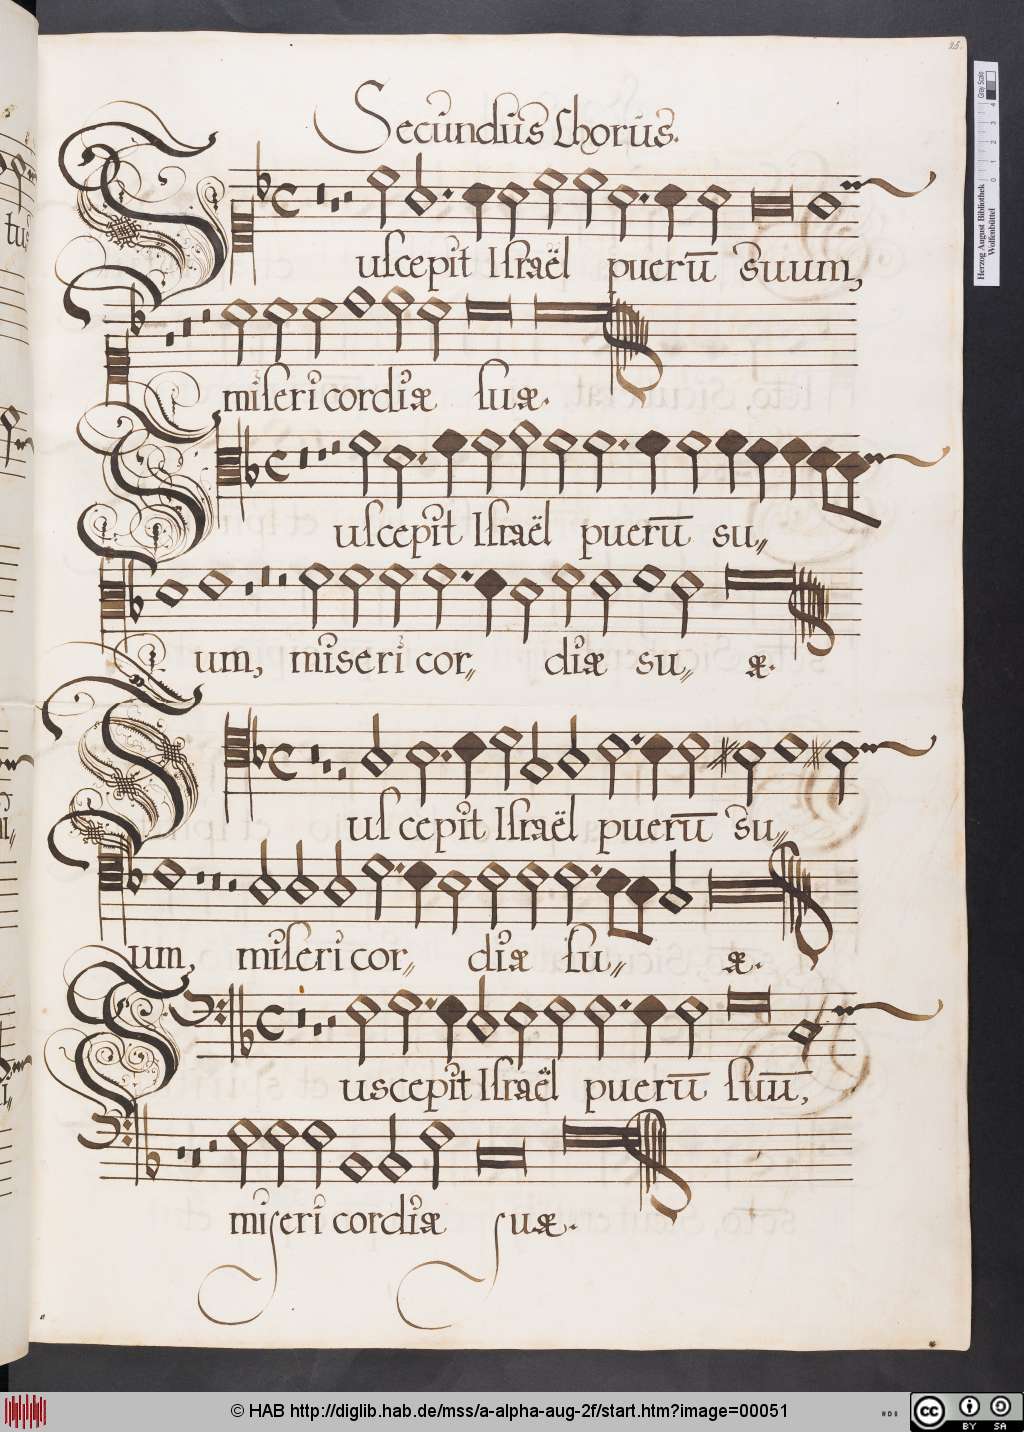 25.
Secundus Chorus.
uscepit Israël puerū suum,
misericordiæ suæ.
uscepit Israël puerū su〃
um, miseri cor〃 diæ su〃 æ.
us cepit Israël puerū su〃
um, miseri cor〃 diæ su〃 æ.
uscepit Israël puerū suū,
misericordiæ suæ.
Herzog August Bibliothek
Wolfenbüttel
0 1 2 3 4
Gray Scale
tus
© HAB http://diglib.hab.de/mss/a-alpha-aug-2f/start.htm?image=00051
HAB
cc BY SA